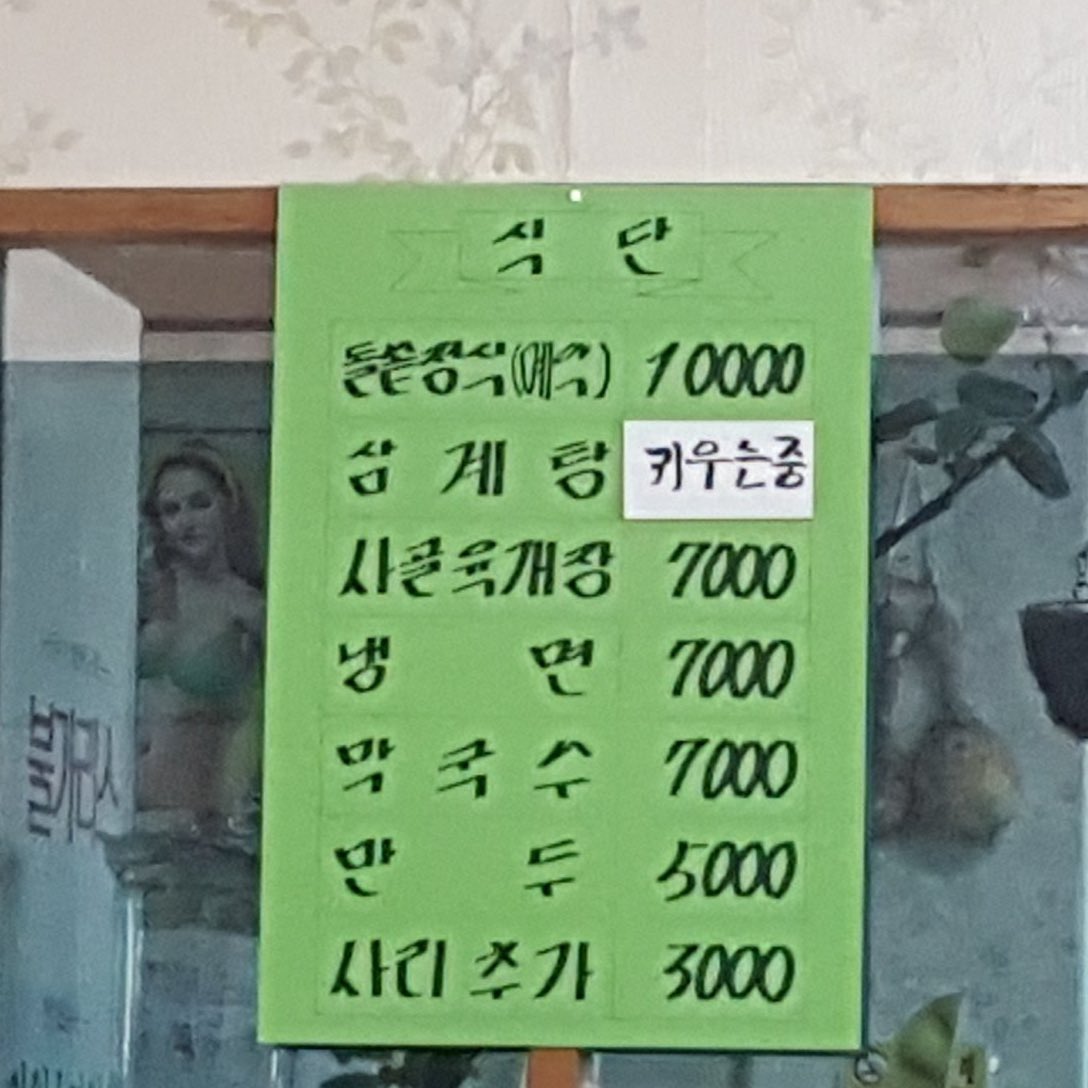 식 단
돌쏟정식(예약) 10000
삼 계 탕 키우는중
사골육개장 7000
냉 면 7000
막 국 수 7000
만 두 5000
사리 추가 3000
불가리스